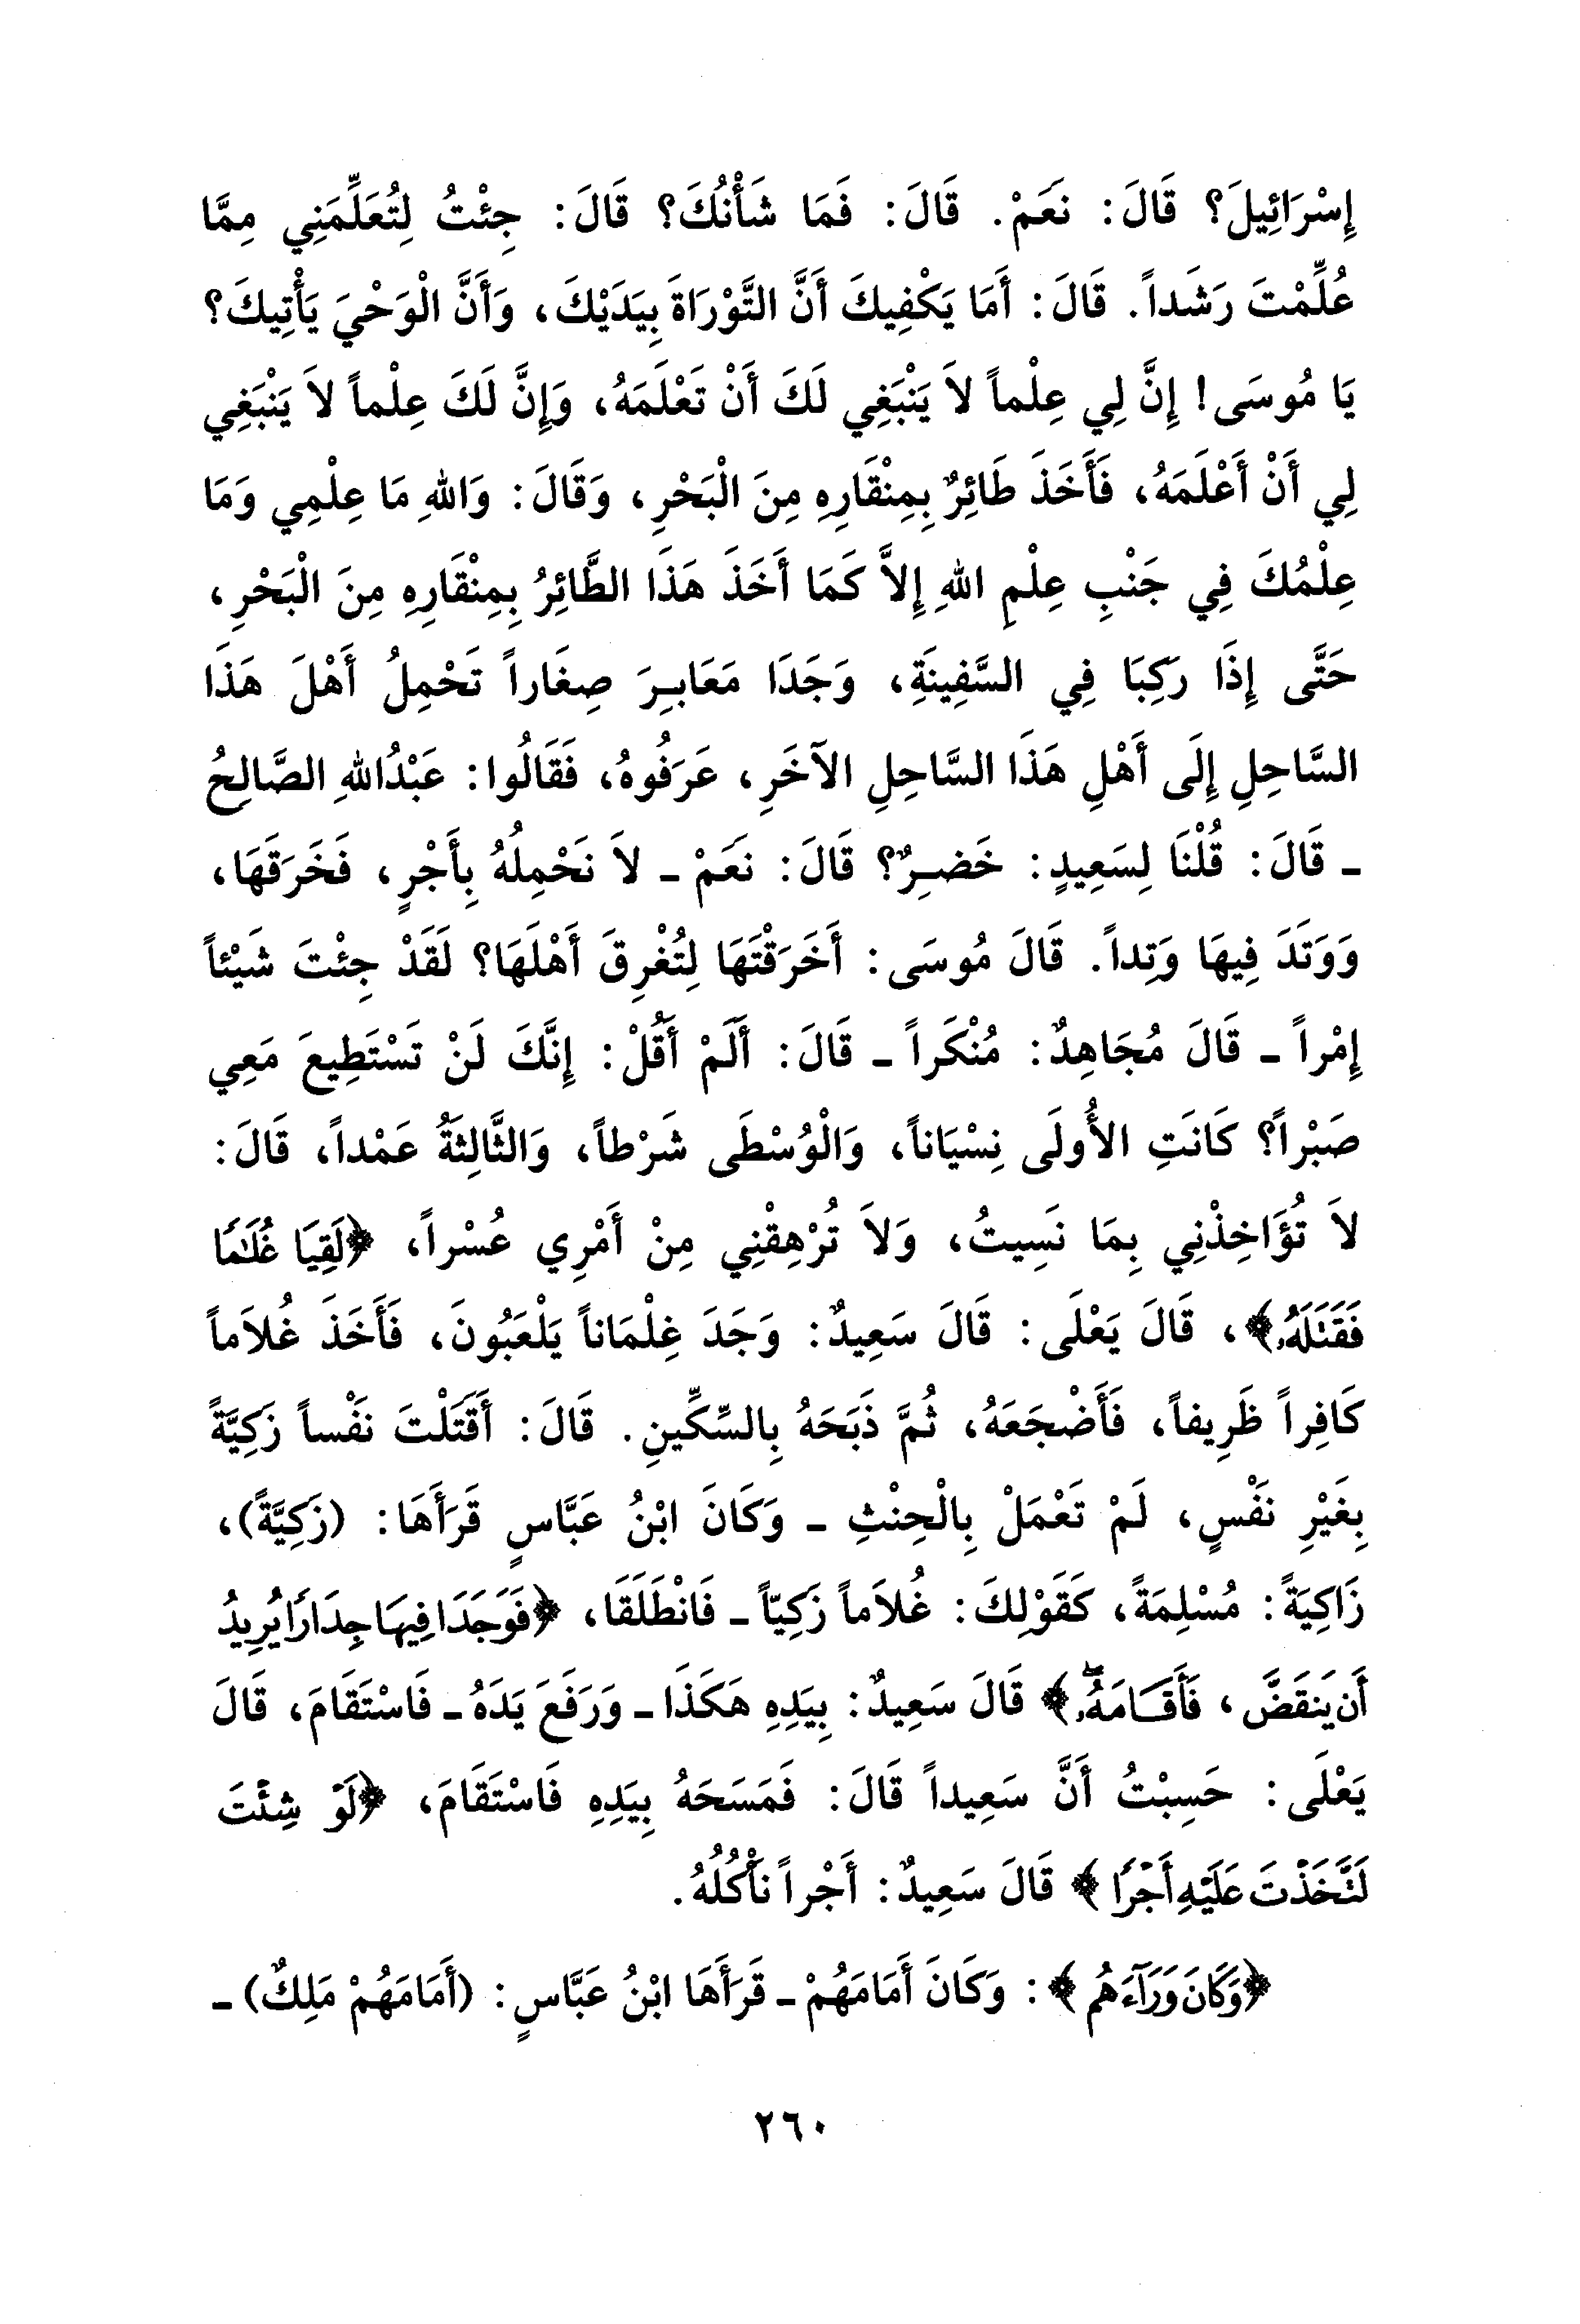 إِسْرَائِيلَ؟ قَالَ: نَعَمْ. قَالَ: فَمَا شَأْنُكَ؟ قَالَ: جِئْتُ لِتُعَلِّمَنِي مِمَّا
عُلِّمْتَ رَشَداً. قَالَ: أَمَا يَكْفِيكَ أَنَّ التَّوْرَاةَ بِيَدَيْكَ، وَأَنَّ الْوَحْيَ يَأْتِيكَ؟
يَا مُوسَى! إِنَّ لِي عِلْماً لاَ يَنْبَغِي لَكَ أَنْ تَعْلَمَهُ، وَإِنَّ لَكَ عِلْماً لاَ يَنْبَغِي
لِي أَنْ أَعْلَمَهُ، فَأَخَذَ طَائِرٌ بِمِنْقَارِهِ مِنَ الْبَحْرِ، وَقَالَ: وَاللهِ مَا عِلْمِي وَمَا
عِلْمُكَ فِي جَنْبِ عِلْمِ اللهِ إِلاَّ كَمَا أَخَذَ هَذَا الطَّائِرُ بِمِنْقَارِهِ مِنَ الْبَحْرِ،
حَتَّى إِذَا رَكِبَا فِي السَّفِينَةِ، وَجَدَا مَعَابِرَ صِغَاراً تَحْمِلُ أَهْلَ هَذَا
السَّاحِلِ إِلَى أَهْلِ هَذَا السَّاحِلِ الآخَرِ، عَرَفُوهُ، فَقَالُوا: عَبْدُاللهِ الصَّالِحُ
ـ قَالَ: قُلْنَا لِسَعِيدٍ: خَضِرٌ؟ قَالَ: نَعَمْ ـ لاَ نَحْمِلُهُ بِأَجْرٍ، فَخَرَقَهَا،
وَوَتَدَ فِيهَا وَتِداً. قَالَ مُوسَى: أَخَرَقْتَهَا لِتُغْرِقَ أَهْلَهَا؟ لَقَدْ جِئْتَ شَيْئاً
إِمْراً ـ قَالَ مُجَاهِدٌ: مُنْكَراً ـ قَالَ: أَلَمْ أَقُلْ: إِنَّكَ لَنْ تَسْتَطِيعَ مَعِي
صَبْراً؟ كَانَتِ الأُولَى نِسْيَاناً، وَالْوُسْطَى شَرْطاً، وَالثَّالِثَةُ عَمْداً، قَالَ:
لاَ تُؤَاخِذْنِي بِمَا نَسِيتُ، وَلاَ تُرْهِقْنِي مِنْ أَمْرِي عُسْراً، ﴿لَقِيَا غُلَٰمًا
فَقَتَلَهُۥ﴾، قَالَ يَعْلَى: قَالَ سَعِيدٌ: وَجَدَ غِلْمَاناً يَلْعَبُونَ، فَأَخَذَ غُلاَماً
كَافِراً ظَرِيفاً، فَأَضْجَعَهُ، ثُمَّ ذَبَحَهُ بِالسِّكِّينِ. قَالَ: أَقَتَلْتَ نَفْساً زَكِيَّةً
بِغَيْرِ نَفْسٍ، لَمْ تَعْمَلْ بِالْحِنْثِ ـ وَكَانَ ابْنُ عَبَّاسٍ قَرَأَهَا: (زَكِيَّةً)،
زَاكِيَةً: مُسْلِمَةً، كَقَوْلِكَ: غُلاَماً زَكِيّاً ـ فَانْطَلَقَا، ﴿فَوَجَدَا فِيهَا جِدَارًا يُرِيدُ
أَن يَنقَضَّ، فَأَقَامَهُۥۖ﴾ قَالَ سَعِيدٌ: بِيَدِهِ هَكَذَا ـ وَرَفَعَ يَدَهُ ـ فَاسْتَقَامَ، قَالَ
يَعْلَى: حَسِبْتُ أَنَّ سَعِيداً قَالَ: فَمَسَحَهُ بِيَدِهِ فَاسْتَقَامَ، ﴿لَوْ شِئْتَ
لَتَّخَذْتَ عَلَيْهِ أَجْرًا﴾ قَالَ سَعِيدٌ: أَجْراً نَأْكُلُهُ.
﴿وَكَانَ وَرَآءَهُم﴾: وَكَانَ أَمَامَهُمْ ـ قَرَأَهَا ابْنُ عَبَّاسٍ: (أَمَامَهُمْ مَلِكٌ) ـ
٢٦٠